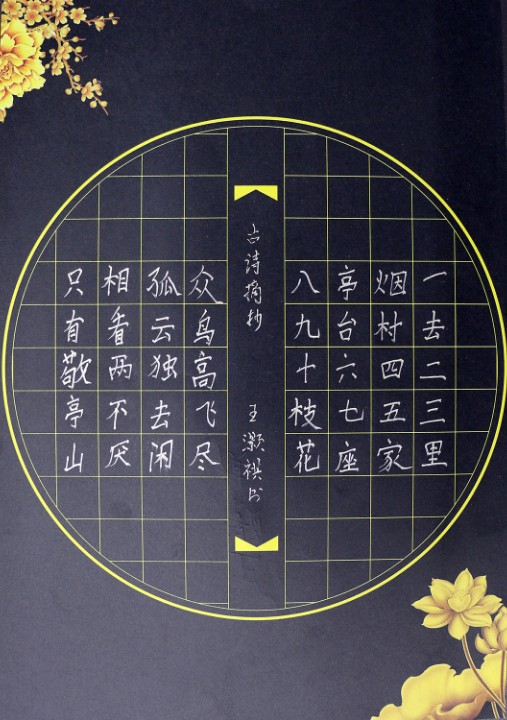 一去二三里
烟村四五家
亭台六七座
八九十枝花
古诗摘抄
王灏祺书
众鸟高飞尽
孤云独去闲
相看两不厌
只有敬亭山